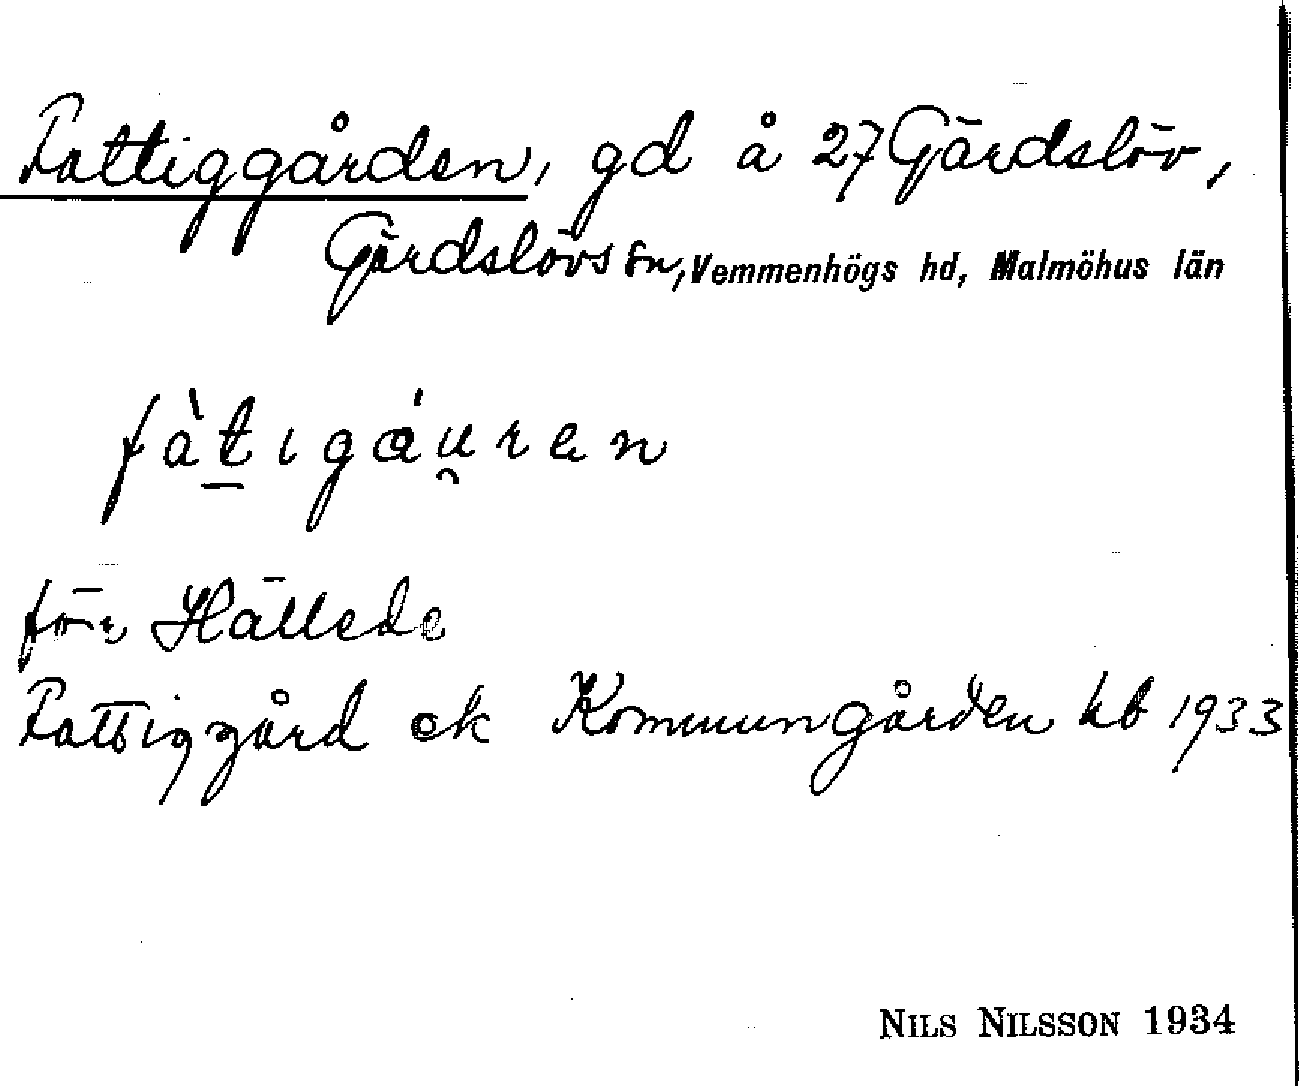 Fattiggården, gd å 27 Gärdslöv,
Gärdslövs sn, Vemmenhögs hd, Malmöhus län
fàt̲ıgáu̯ren
för Hällede
Fattiggård ek Kommungården kb 1933
NILS NILSSON 1934